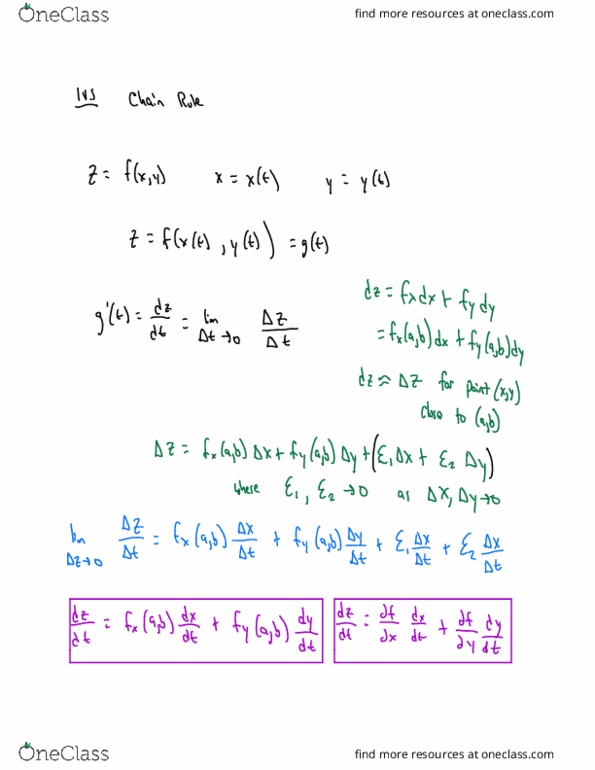 OneClass find more resources at oneclass.com
14.5 Chain Rule
z = f(x,y) x = x(t) y = y(t)
z = f(x(t), y(t)) = g(t)
g'(t) = dz/dt = lim Δt→0 Δz/Δt
dz = fx dx + fy dy
= fx(a,b) dx + fy(a,b) dy
dz ≈ Δz for point (x,y)
close to (a,b)
Δz = fx(a,b) Δx + fy(a,b) Δy + (ε1 Δx + ε2 Δy)
where ε1, ε2 → 0 as Δx, Δy → 0
lim Δz→0 Δz/Δt = fx(a,b) Δx/Δt + fy(a,b) Δy/Δt + ε1 Δx/Δt + ε2 Δx/Δt
dz/dt = fx(a,b) dx/dt + fy(a,b) dy/dt
dz/dt = ∂f/∂x dx/dt + ∂f/∂y dy/dt
OneClass find more resources at oneclass.com